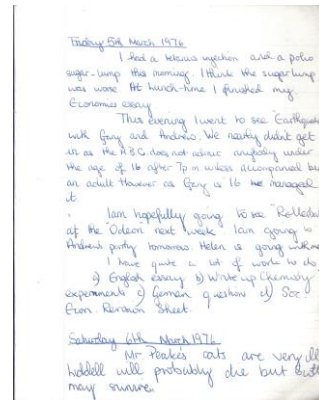 Friday 5th March 1976
I had a tetanus injection and a polio
sugar-lump this morning. I think the sugar lump
was worse. At lunch-time I finished my
Economics essay
This evening I went to see "Earthquake
with Gary and Andrew. We nearly didn't get
in as the A.B.C. does not admit anybody under
the age of 16 after 7p.m unless accompanied by
an adult However as Gary is 16 we managed
it.
I am hopefully going to see "Rollerball
at the "Odeon" next week. I am going to
Andrew's party tomorrow. Helen is going with me
I have quite a lot of work to do
a) English essay b) Write up Chemistry
experiments c) German question d) Soc.
Econ. Revision Sheet.
Saturday 6th March 1976
Mr Peake's cats are very ill
will probably die but
may survive.